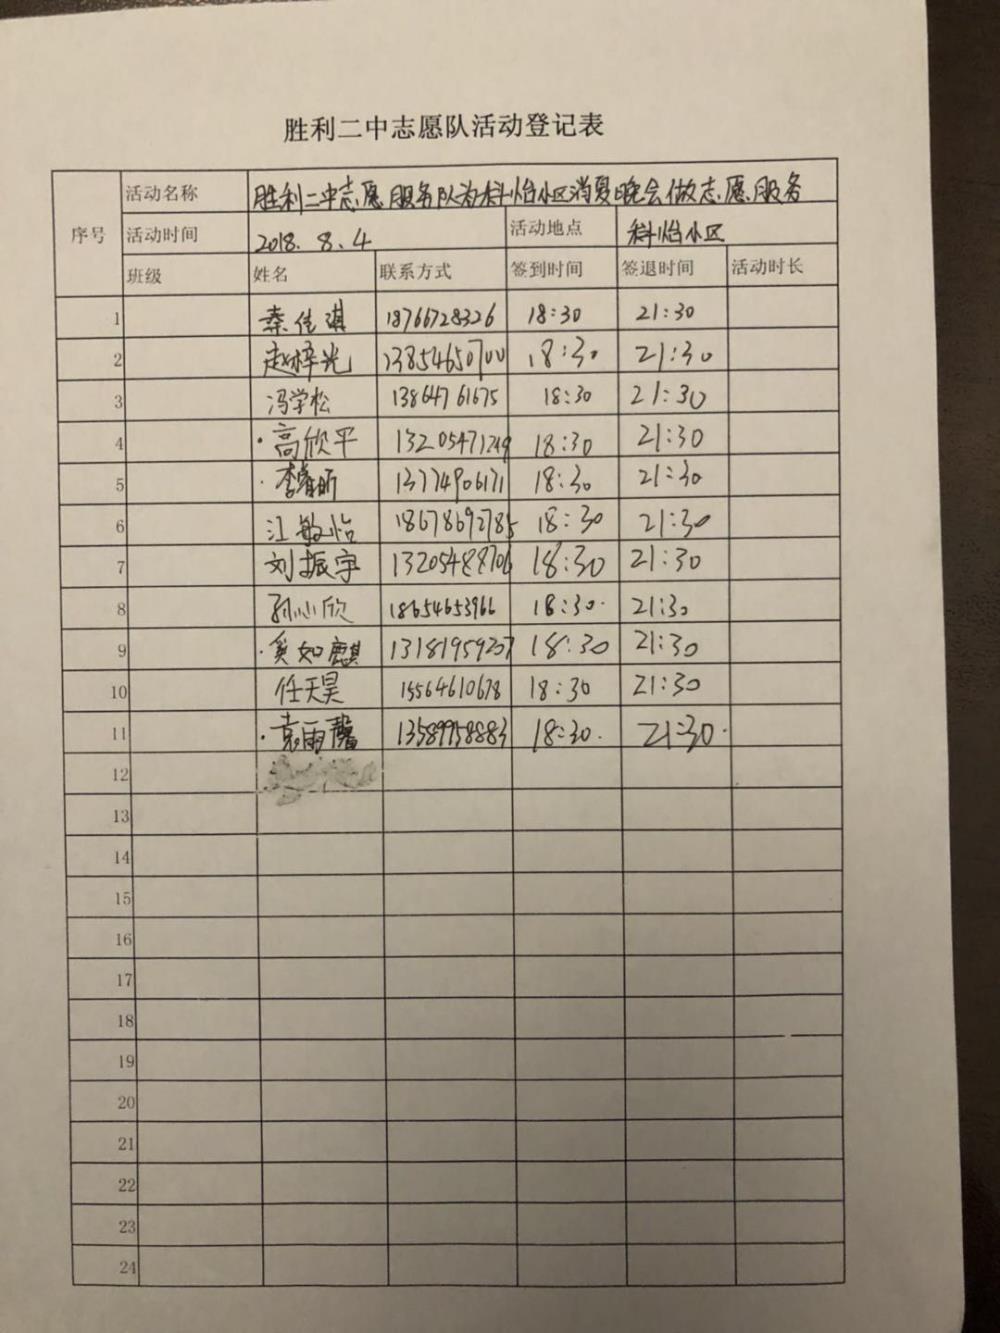 胜利二中志愿队活动登记表
序号 活动名称 胜利二中志愿服务队为科怡小区消夏晚会做志愿服务
活动时间 2018.8.4 活动地点 科怡小区
班级 姓名 联系方式 签到时间 签退时间 活动时长
1 秦佳淇 18766728326 18:30 21:30
2 赵梓光 13854650700 18:30 21:30
3 冯学松 13864761675 18:30 21:30
4 ·高欣平 13205471249 18:30 21:30
5 ·李睿昕 13774906171 18:30 21:30
6 江敏怡 18678692785 18:30 21:30
7 刘振宇 13205488706 18:30 21:30
8 孙心欣 18654653966 18:30· 21:30
9 ·奚如麒 13181959207 18:30 21:30
10 任天昊 15564610678 18:30 21:30
11 ·袁雨馨 13589958883 18:30· 21:30·
12
13
14
15
16
17
18
19
20
21
22
23
24